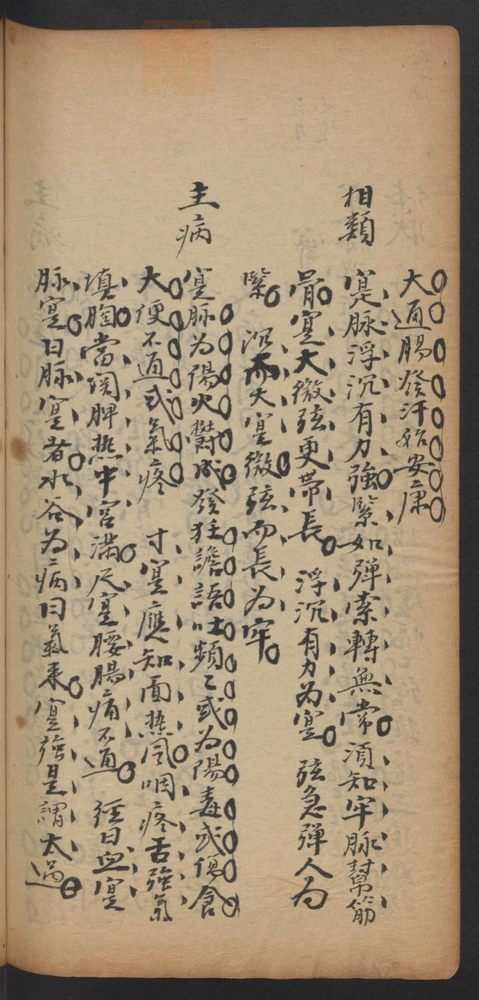 大通腸發汗始安康
相類
寔脉浮沉有力強緊如彈索轉無常須知牢脉幫筋
骨寔大微弦更帶長 浮沉有力為寔 弦急彈人為
緊 沉而大寔微弦而長為牢
主病
寔脉為陽火鬱成發狂譫語吐頻頻或為陽毒或傷食
大便不通或氣疼 寸寔應知面熱風咽疼舌強氣
填胸當関脾熱中宮滿尺寔腰腸痛不通 經曰血寔
脉寔曰脉寔者水谷為病曰氣来寔強是謂太過